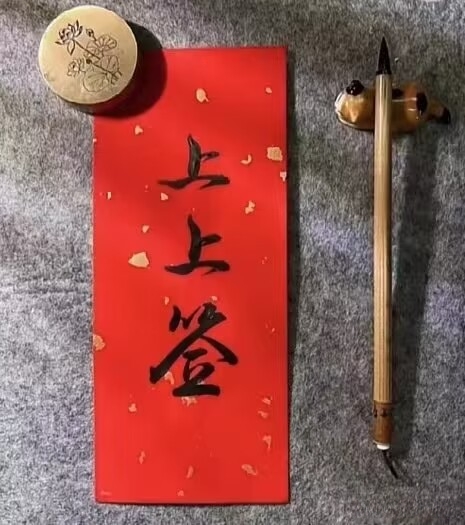 上上签